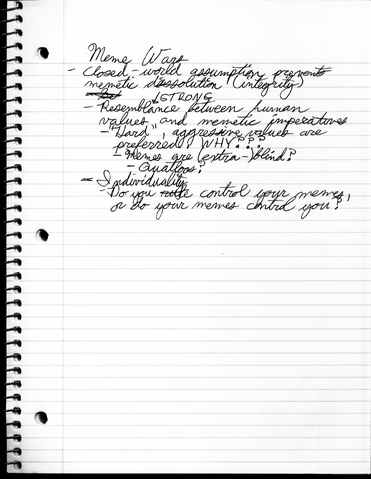 Meme Wars
- Closed-world assumption prevents
memetic dissolution (integrity)
STRONG
- Resemblance between human
values and memetic imperatives
- "Hard", aggressive values are
preferred! WHY???
- Memes are (extra-)blind?
- Qualoos?
- Individuality
- Do you control your memes,
or do your memes control you?